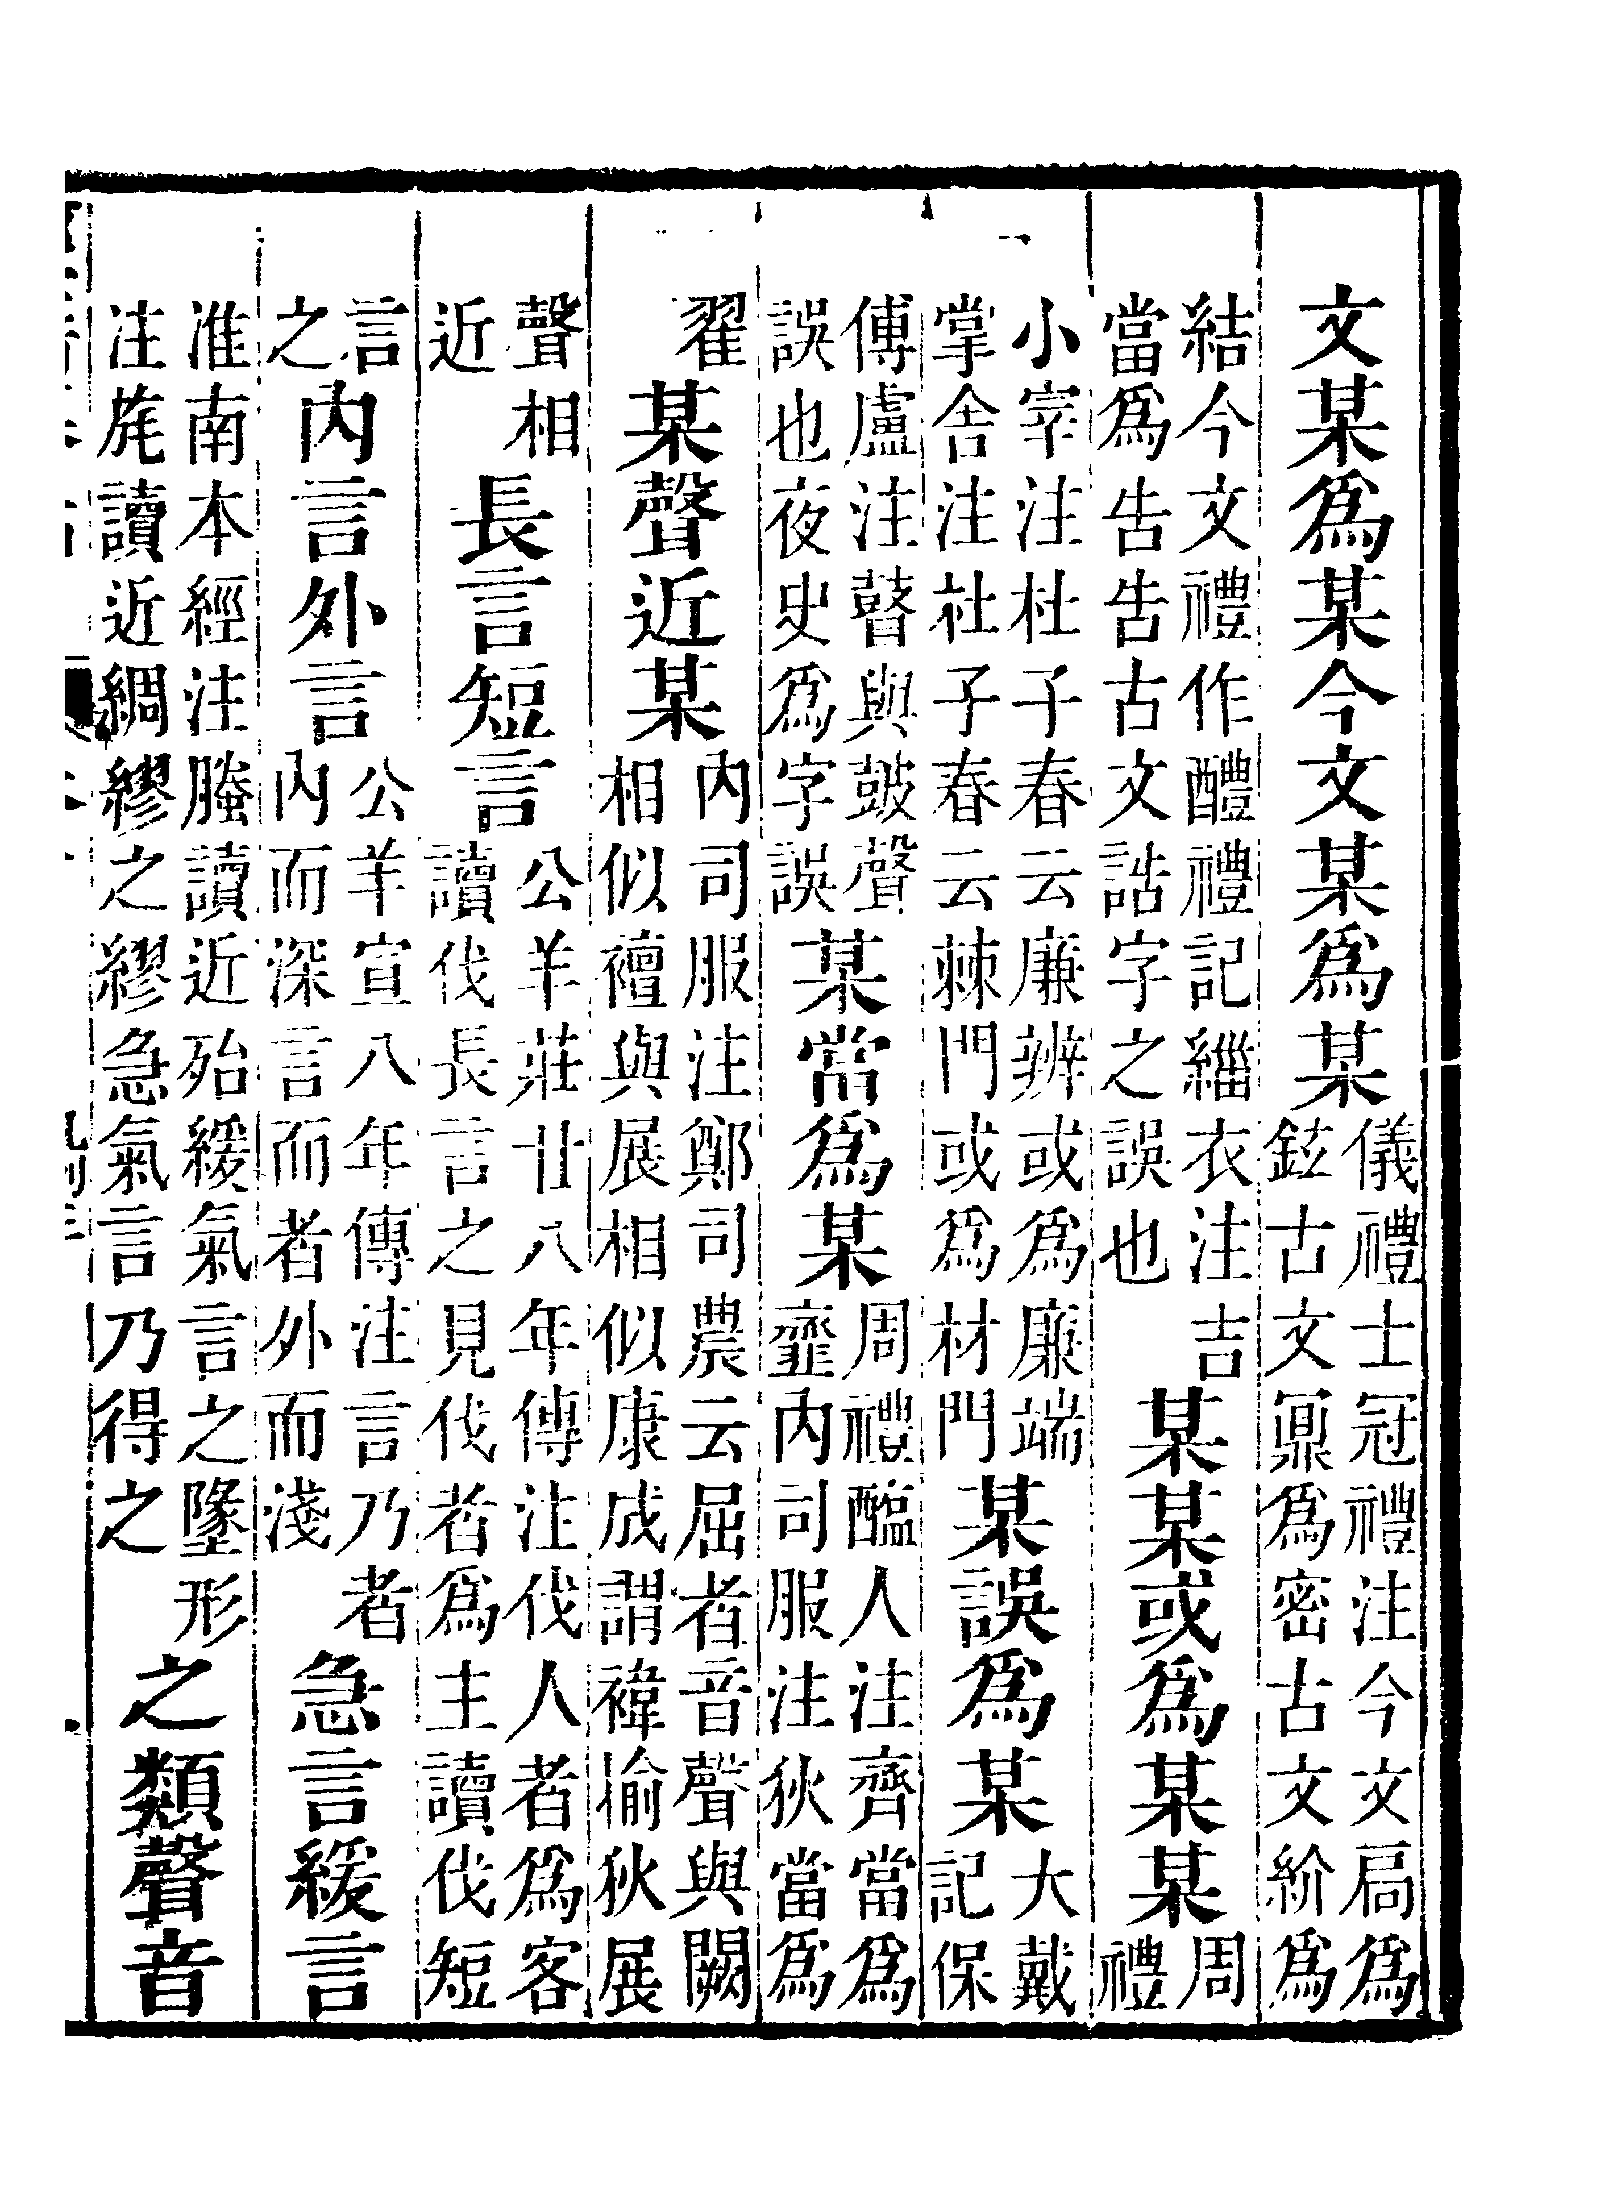 文某爲某今文某爲某儀禮士冠禮注今文扃爲鉉古文鼏爲密古文紒爲
結今文禮作醴禮記緇衣注吉當爲告告古文誥字之誤也某某或爲某某周禮
小宰注杜子春云廉辨或爲廉端掌舍注杜子春云棘門或爲材門某誤爲某大戴記保
傅盧注瞽與鼓聲誤也夜史爲字誤某當爲某周禮醢人注齊當爲韲內司服注狄當爲
翟某聲近某內司服注鄭司農云屈者音聲與闕相似襢與展相似康成謂褘揄狄展
聲相近長言短言公羊莊廿八年傳注伐人者爲客讀伐長言之見伐者爲主讀伐短
言之內言外言公羊宣八年傳注言乃者內而深言而者外而淺急言緩言
淮南本經注螣讀近殆緩氣言之墬形注旄讀近綢繆之繆急氣言乃得之之類聲音